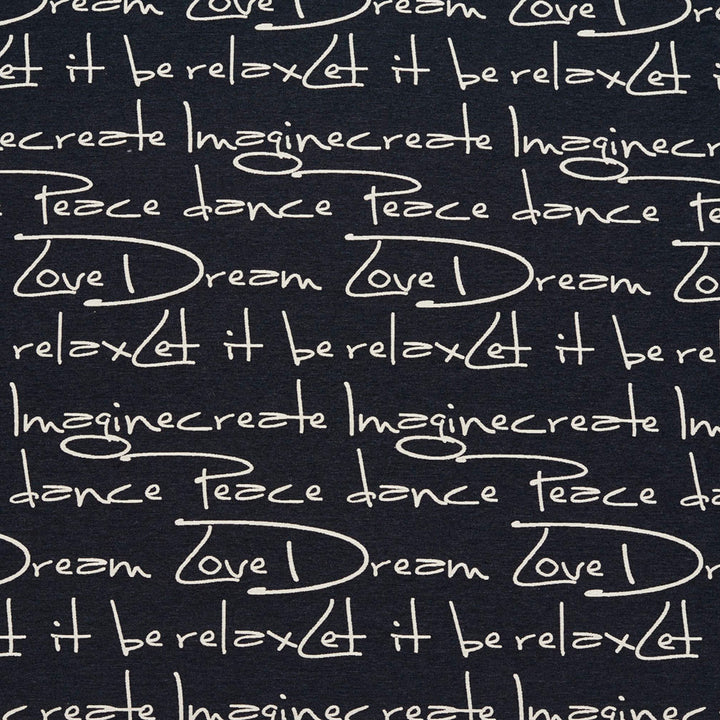 Dream Love Dream Love D
Let it be relax Let it be relax Let i
ecreate Imagine create Imagine cr
Peace dance Peace dance Pe
Love Dream Love Dream Lo
relax Let it be relax Let it be re
Imagine create Imagine create Im
dance Peace dance Peace da
Dream Love Dream Love D
t it be relax Let it be relax Let
create Imagine create Imagine